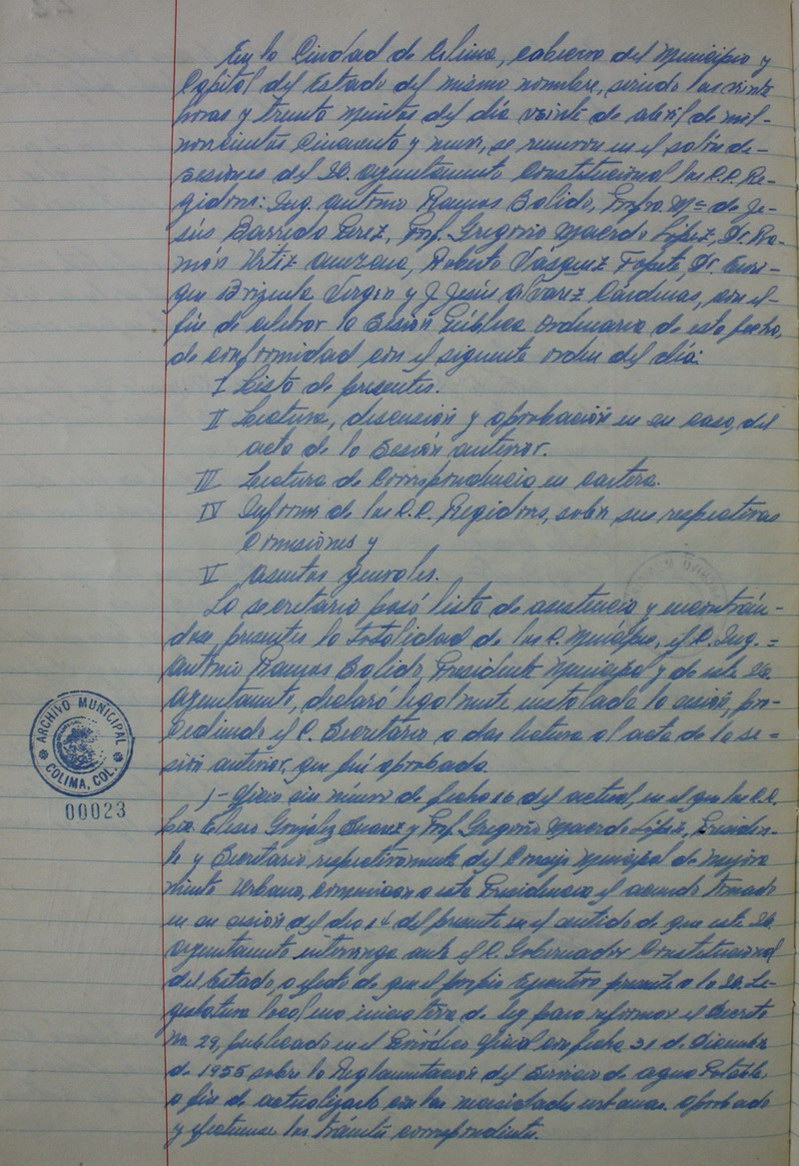 En la Ciudad de Colima, cabecera del Municipio y
Capital del Estado del mismo nombre, siendo las veinte
horas y treinta minutos del día veinte de abril de mil
novecientos cincuenta y nueve, se reunieron en el salón de-
sesiones del H. Ayuntamiento Constitucional, los C.C. Re-
gidores: Ing. Antonio Ramos Salido, Profra. Ma. de Je-
sús Barreda Pérez, Prof. Gregorio Macedo López, Dr. Ra-
món Ortiz, Roberto Vásquez Topete, Dr. Enri-
que Brizuela Virgen y J. Jesús Alvarez Cárdenas, con el-
fin de celebrar la Sesión Pública Ordinaria de esta fecha,
de conformidad con el siguiente orden del día:
I Lista de presentes.
II Lectura, discusión y aprobación en su caso, del
acta de la Sesión anterior.
III Lectura de Correspondencia en cartera.
IV Informe de los C.C. Regidores, sobre sus respectivas
Comisiones y
V asuntos generales.
La secretaría pasó lista de asistencia y encontrán-
dose presentes la totalidad de los C. Munícipes, el C. Ing. =
Antonio Ramos Salido Presidente Municipal y de este H.
Ayuntamiento, declaró legalmente instalada la sesión, pro-
cediendo el C. Secretario a dar lectura al acta de la se-
sión anterior, que fué aprobada.
1- Oficio sin número de fecha 16 del actual, en el que los C.C.
Lic. Eliseo González Suarez y Prof. Gregorio Macedo López, Presiden-
te y Secretario respectivamente del Consejo Municipal de Mejora
miento Urbano, comunican a esta Presidencia el acuerdo tomado
en su sesión del día 14 del presente en el sentido de que este H.
Ayuntamiento intervenga ante el C. Gobernador Constitucional
del Estado, a efecto de que el propio Ejecutivo presente a la H. Le-
gislatura local una iniciativa de ley para reformar el Decreto
No. 29, publicado en el Periódico Oficial con fecha 31 de Diciembre
de 1955 sobre la Reglamentación del Servicio de agua Potable
a fin de actualizarlo con las necesidades urbanas. aprobado
y efectuense los trámites correspondientes.
ARCHIVO MUNICIPAL
COLIMA, COL.
00023